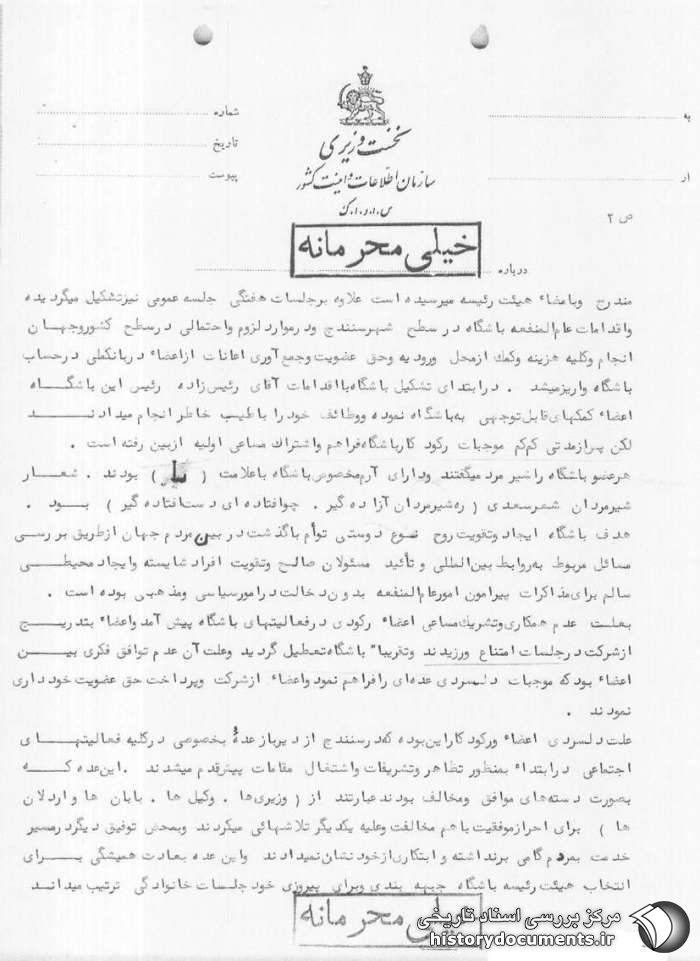 به
شماره
تاریخ
از
پیوست
نخست وزیری
سازمان اطلاعات و امنیت کشور
س.ا.و.ا.ک
ص ۲
خیلی محرمانه
درباره
مندرج وباعضاء هیئت رئیسه میرسیده است علاوه برجلسات هفتگی جلسه عمومی نیزتشکیل میگردیده
واقدامات عام‌المنفعه باشگاه در سطح شهرسنندج ودرموارد لزوم واحتمالی درسطح کشوروجهان
انجام وکلیه هزینه وکمک ازمحل ورودیه وحق عضویت وجمع‌آوری اعانات ازاعضاء دربانکملی درحساب
باشگاه واریزمیشد . درابتدای تشکیل باشگاه‌بااقدامات آقای رئیس‌زاده رئیس این باشگاه
اعضاء کمکهای‌قابل‌توجهی به‌باشگاه نموده ووظائف خودرا باطیب خاطر انجام میدادند
لکن پس‌ازمدتی کم‌کم موجبات رکود کارباشگاه‌فراهم واشتراک مساعی اولیه ازبین رفته است .
هرعضو باشگاه راشیر مردمیگفتند ودارای آرم‌مخصوص‌باشگاه باعلامت ( ) بودند . شعار
شیرمردان شعرسعدی ( ره‌شیرمردان آزاده گیر . چوافتاده ای دست‌افتاده گیر ) بود .
هدف باشگاه ایجاد وتقویت روح نوع دوستی توأم باگذشت در بین مردم جهان ازطریق بررسی
مسائل مربوط به‌روابط بین‌المللی و تأئید مسئولان صالح وتقویت افراد شایسته وایجاد محیطی
سالم برای‌مذاکرات پیرامون امورعام‌المنفعه بدون‌دخالت درامورسیاسی ومذهبی بوده است .
بعلت عدم همکاری وتشریک‌مساعی اعضاء رکودی درفعالیتهای باشگاه پیش آمد واعضاء بتدریج
ازشرکت درجلسات امتناع ورزیدند وتقریبا" باشگاه‌تعطیل گردید وعلت‌آن عدم توافق فکری بین
اعضاء بودکه موجبات دلسردی عده‌ای رافراهم نمود واعضاء ازشرکت وپرداخت حق عضویت خودداری
نمودند .
علت دلسردی اعضاء ورکود کاراین‌بوده که‌درسنندج از دیرباز عدهٔ بخصوصی درکلیه فعالیتهای
اجتماعی درابتداء بمنظور تظاهر وتشریفات واشتغال مقامات پیشقدم میشدند .این‌عده که
بصورت دسته‌های موافق ومخالف بودند عبارتند از ( وزیری‌ها . وکیل ها . بابان ها و اردلان
ها ) برای احرازموفقیت باهم مخالفت وعلیه یکدیگر تلاشهائی میکردند وبمحض توفیق دیگردرمسیر
خدمت بمردم‌گامی برنداشته و ابتکاری‌ازخودنشان‌نمیدادند واین عده بعادت همیشگی برای
انتخاب هیئت رئیسه باشگاه جبهه بندی وبرای پیروزی خود جلسات خانوادگی ترتیب میدادند
خیلی محرمانه
مرکز بررسی اسناد تاریخی
historydocuments.ir